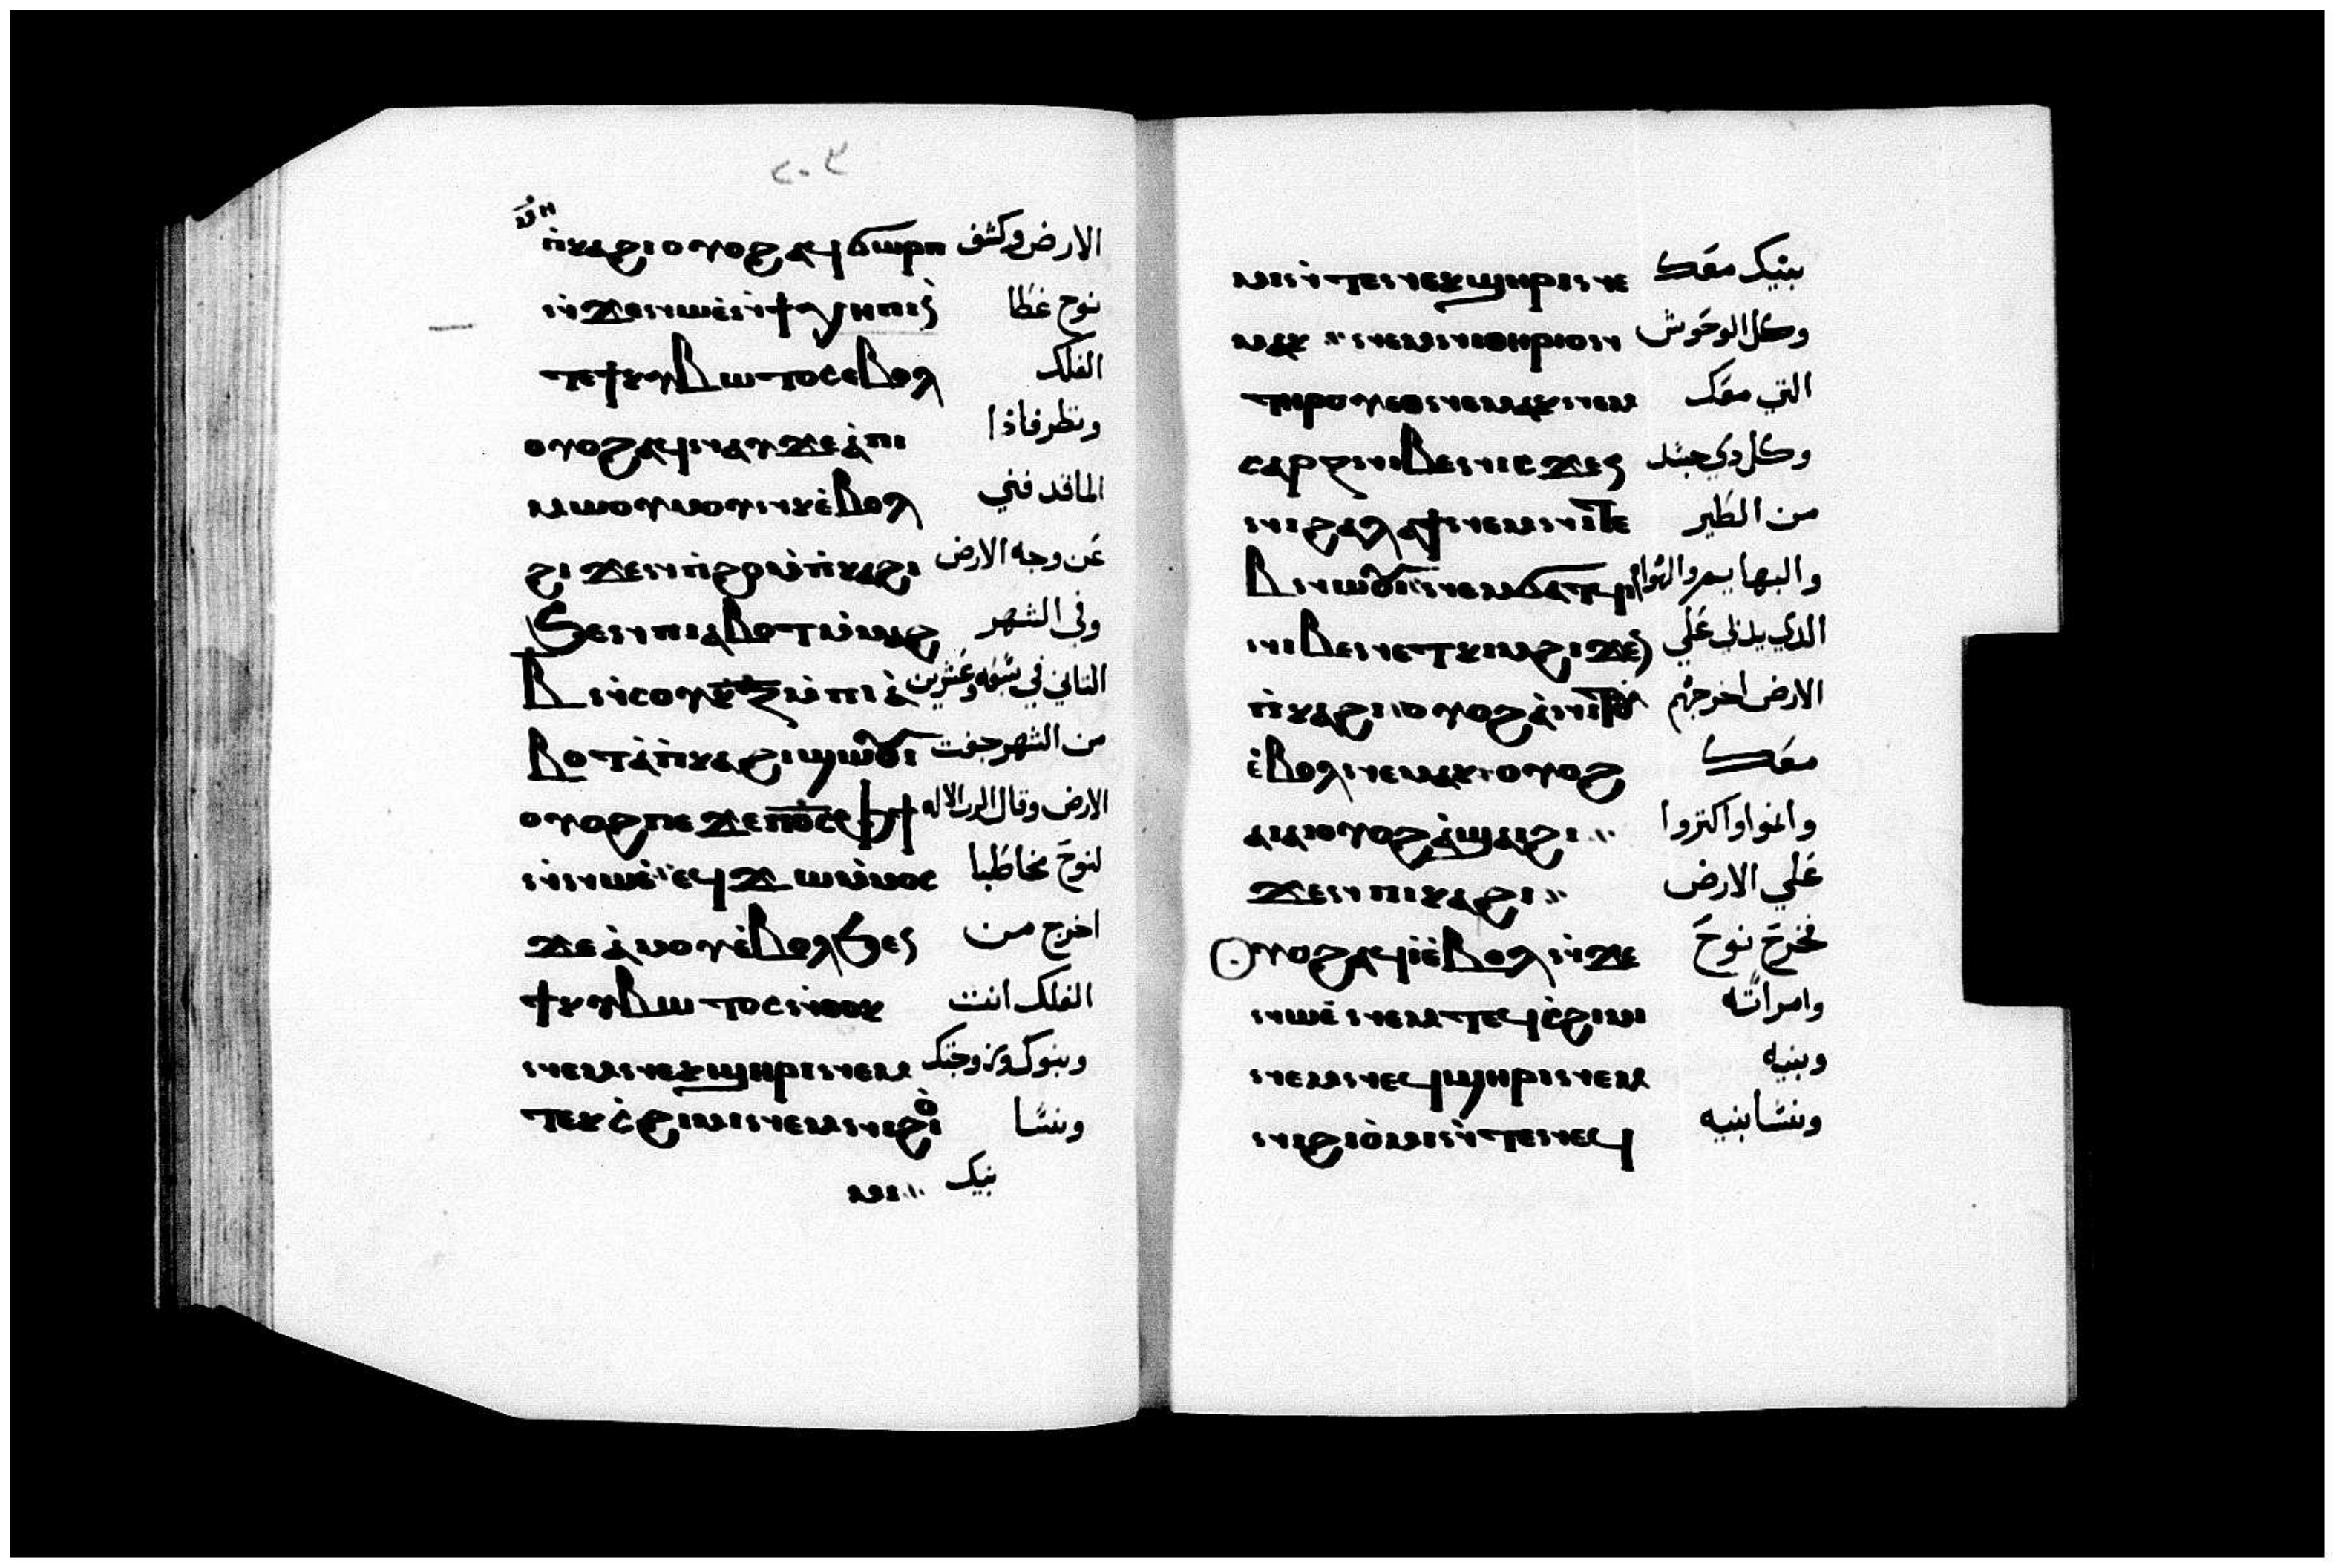 ٢٠٣
ⲡ̀ⲕⲁϩⲓ ⲟⲩⲟϩ ⲁϥϭⲱⲣⲡ الارض وكشف
ⲛ̀ϫⲉ ⲛⲱⲉ̀ نوح غطا
ⲧⲉ ϯⲕⲩⲃⲱⲧⲟⲥ ⲉⲃⲟⲗ الفلك
ⲟⲩⲟϩ ⲁϥⲛⲁⲩ ϫⲉ ⲁ̀ ⲡⲓ ونظر فاذا
ⲙⲱⲟⲩ ⲙⲟⲩⲛⲕ ⲉ̀ⲃⲟⲗ الما قد فني
ϩⲓϫⲉⲛ ⲡ̀ϩⲟ ⲙ̀ⲡ̀ⲕⲁϩⲓ عن وجه الارض
ϧⲉⲛ ⲡⲓⲁⲃⲟⲧ ⲙ̀ⲙⲁϩ وفي الشهر
ⲃ ⲛ̀ⲥⲟⲩ ⲕ̅ⲍ̅ ⲙ̀ⲡⲓⲁ̀ التاني في سبعه وعشرين
ⲃⲟⲧ ⲁ̀ ⲡ̀ⲕⲁϩⲓ ϣⲱⲟⲩⲓ من الشهر جفت
ⲟⲩⲟϩ ⲡⲉϫⲉ ⲡⲟ̅ⲥ̅ ⲫϯ الارض وقال الرب الاله
ⲛ̀ⲛⲱⲉ̀ ⲉϥϫⲱ ⲙ̀ⲙⲟⲥ لنوح مخاطبا
ϫⲉ ⲁ̀ⲙⲟⲩ ⲉ̀ⲃⲟⲗϧⲉⲛ اخرج من
ϯⲕⲩⲃⲱⲧⲟⲥ ⲛ̀ⲑⲟⲕ الفلك انت
ⲛⲉⲙ ⲛⲉⲕϣⲏⲣⲓ ⲛⲉⲙ وبنوك وزوجتك
ⲧⲉⲕⲥ̀ϩⲓⲙⲓ ⲛⲉⲙ ⲛⲓϩⲓⲟ̀ ونسا
ⲙⲓ بنيك
ⲙⲓ ⲛ̀ⲧⲉ ⲛⲉⲕϣⲏⲣⲓ ⲛⲉ بنيك معك
ⲙⲁⲕ ⲛⲉⲙ ⲛⲓⲑⲏⲣⲓⲟⲛ وكل الوحوش
ⲧⲏⲣⲟⲩ ⲉⲑⲛⲉⲙⲁⲕ ⲛⲉⲙ التي معك
ⲥⲁⲣⲝ ⲛⲓⲃⲉⲛ ⲓⲥϫⲉⲛ وكل دي جسد
ⲛⲓϩⲁⲗⲁϯ ⲛⲉⲙ ⲛⲓⲧⲉ من الطير
ⲃⲛⲱⲟⲩⲓ ⲛⲉⲙ ϭⲁⲧϥⲓ والبهايم والهوام
ⲛⲓⲃⲉⲛ ⲉⲧⲕⲓⲙ ϩⲓϫⲉⲛ الذي يدبي علي
ⲡ̀ⲕⲁϩⲓ ⲟⲩⲟϩ ⲁ̀ⲛⲓⲧⲟⲩ الارض اخرجهم
ⲉ̀ⲃⲟⲗ ⲛⲉⲙⲁⲕ ⲟⲩⲟϩ معك
ⲁⲓⲁⲓ ⲟⲩⲟϩ ⲁ̀ϣⲁⲓ ϩⲓ وانموا واكتروا
ϫⲉⲛ ⲡⲓⲕⲁϩⲓ علي الارض
ⲟⲩⲟϩ ⲁϥⲓ̀ ⲉ̀ⲃⲟⲗ ⲛ̀ϫⲉ فخرج نوح
ⲛⲱⲉ̀ ⲛⲉⲙ ⲧⲉϥⲥ̀ϩⲓⲙⲓ وامراته
ⲛⲉⲙ ⲛⲉϥϣⲏⲣⲓ ⲛⲉⲙ وبنيه
ⲛⲓϩⲓⲟ̀ⲙⲓ ⲛ̀ⲧⲉ ⲛⲉϥ ونسا بنيه